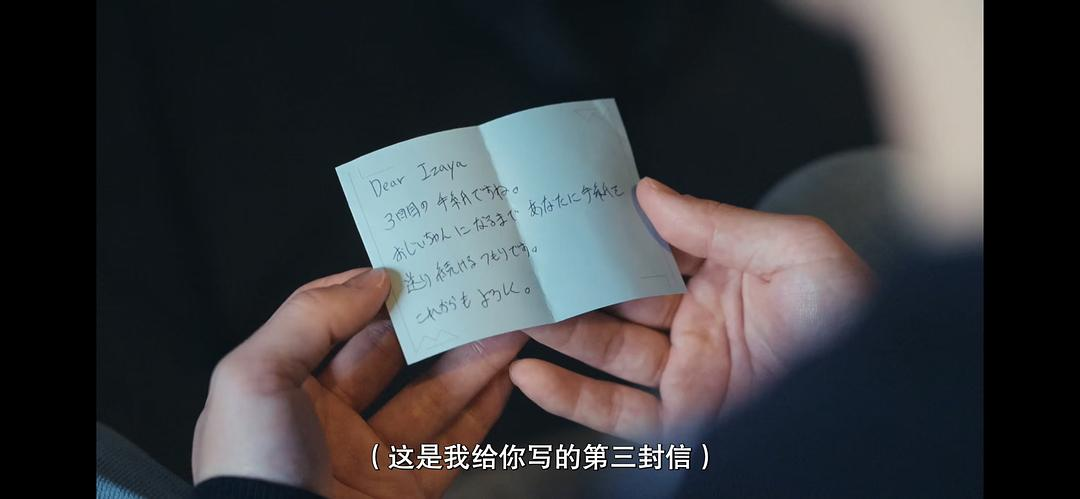 Dear Izaya
3回目の手紙ですね。
おじいちゃんになるまで あなたに手紙を
送り続けるつもりです。
これからも よろしく。
（这是我给你写的第三封信）